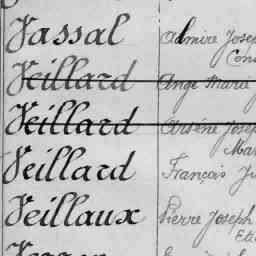 Vassal Admire Jose
Con
Veillard Ange Marie
Veillard Arsène Josep
Mar
Veillard François Ju
Veillaux Pierre Joseph
Eti